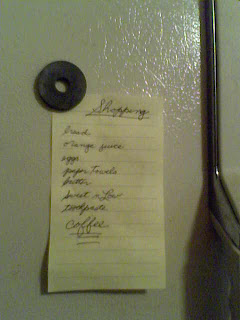 Shopping
bread
orange juice
eggs
paper Towels
butter
Sweet n Low
toothpaste
coffee